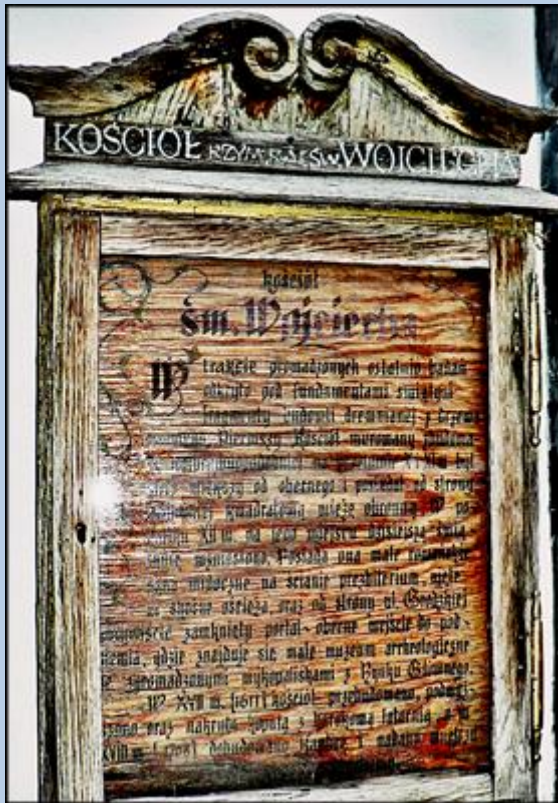 KOŚCIÓŁ RZYM-KAT ŚW WOJCIECHA
kościół
św. Wojciecha
W trakcie prowadzonych ostatnio badań
odkryto pod fundamentami świątyni
fragmenty budowli drewnianej z drzewa
Pierwszy kościół murowany
był
większy od obecnego i posiadał od strony
kwadratową wieżę obronną. W po-
XII w. na tego miejscu dzisiejszą świą-
wzniesiono. Posiada ona małe romańskie
okna widoczne na ścianie prezbiterium,
oraz od strony ul. Grodzkiej
zamknięty portal-obecne wejście do pod-
ziemia, gdzie znajduje się małe muzeum archeologiczne
ze zgromadzonymi wykopaliskami z Rynku Głównego.
W XVII w. [1611] kościół przebudowano, podwyż-
szono oraz nakryto kopułą z latarnią a w
XVIII w. dobudowano